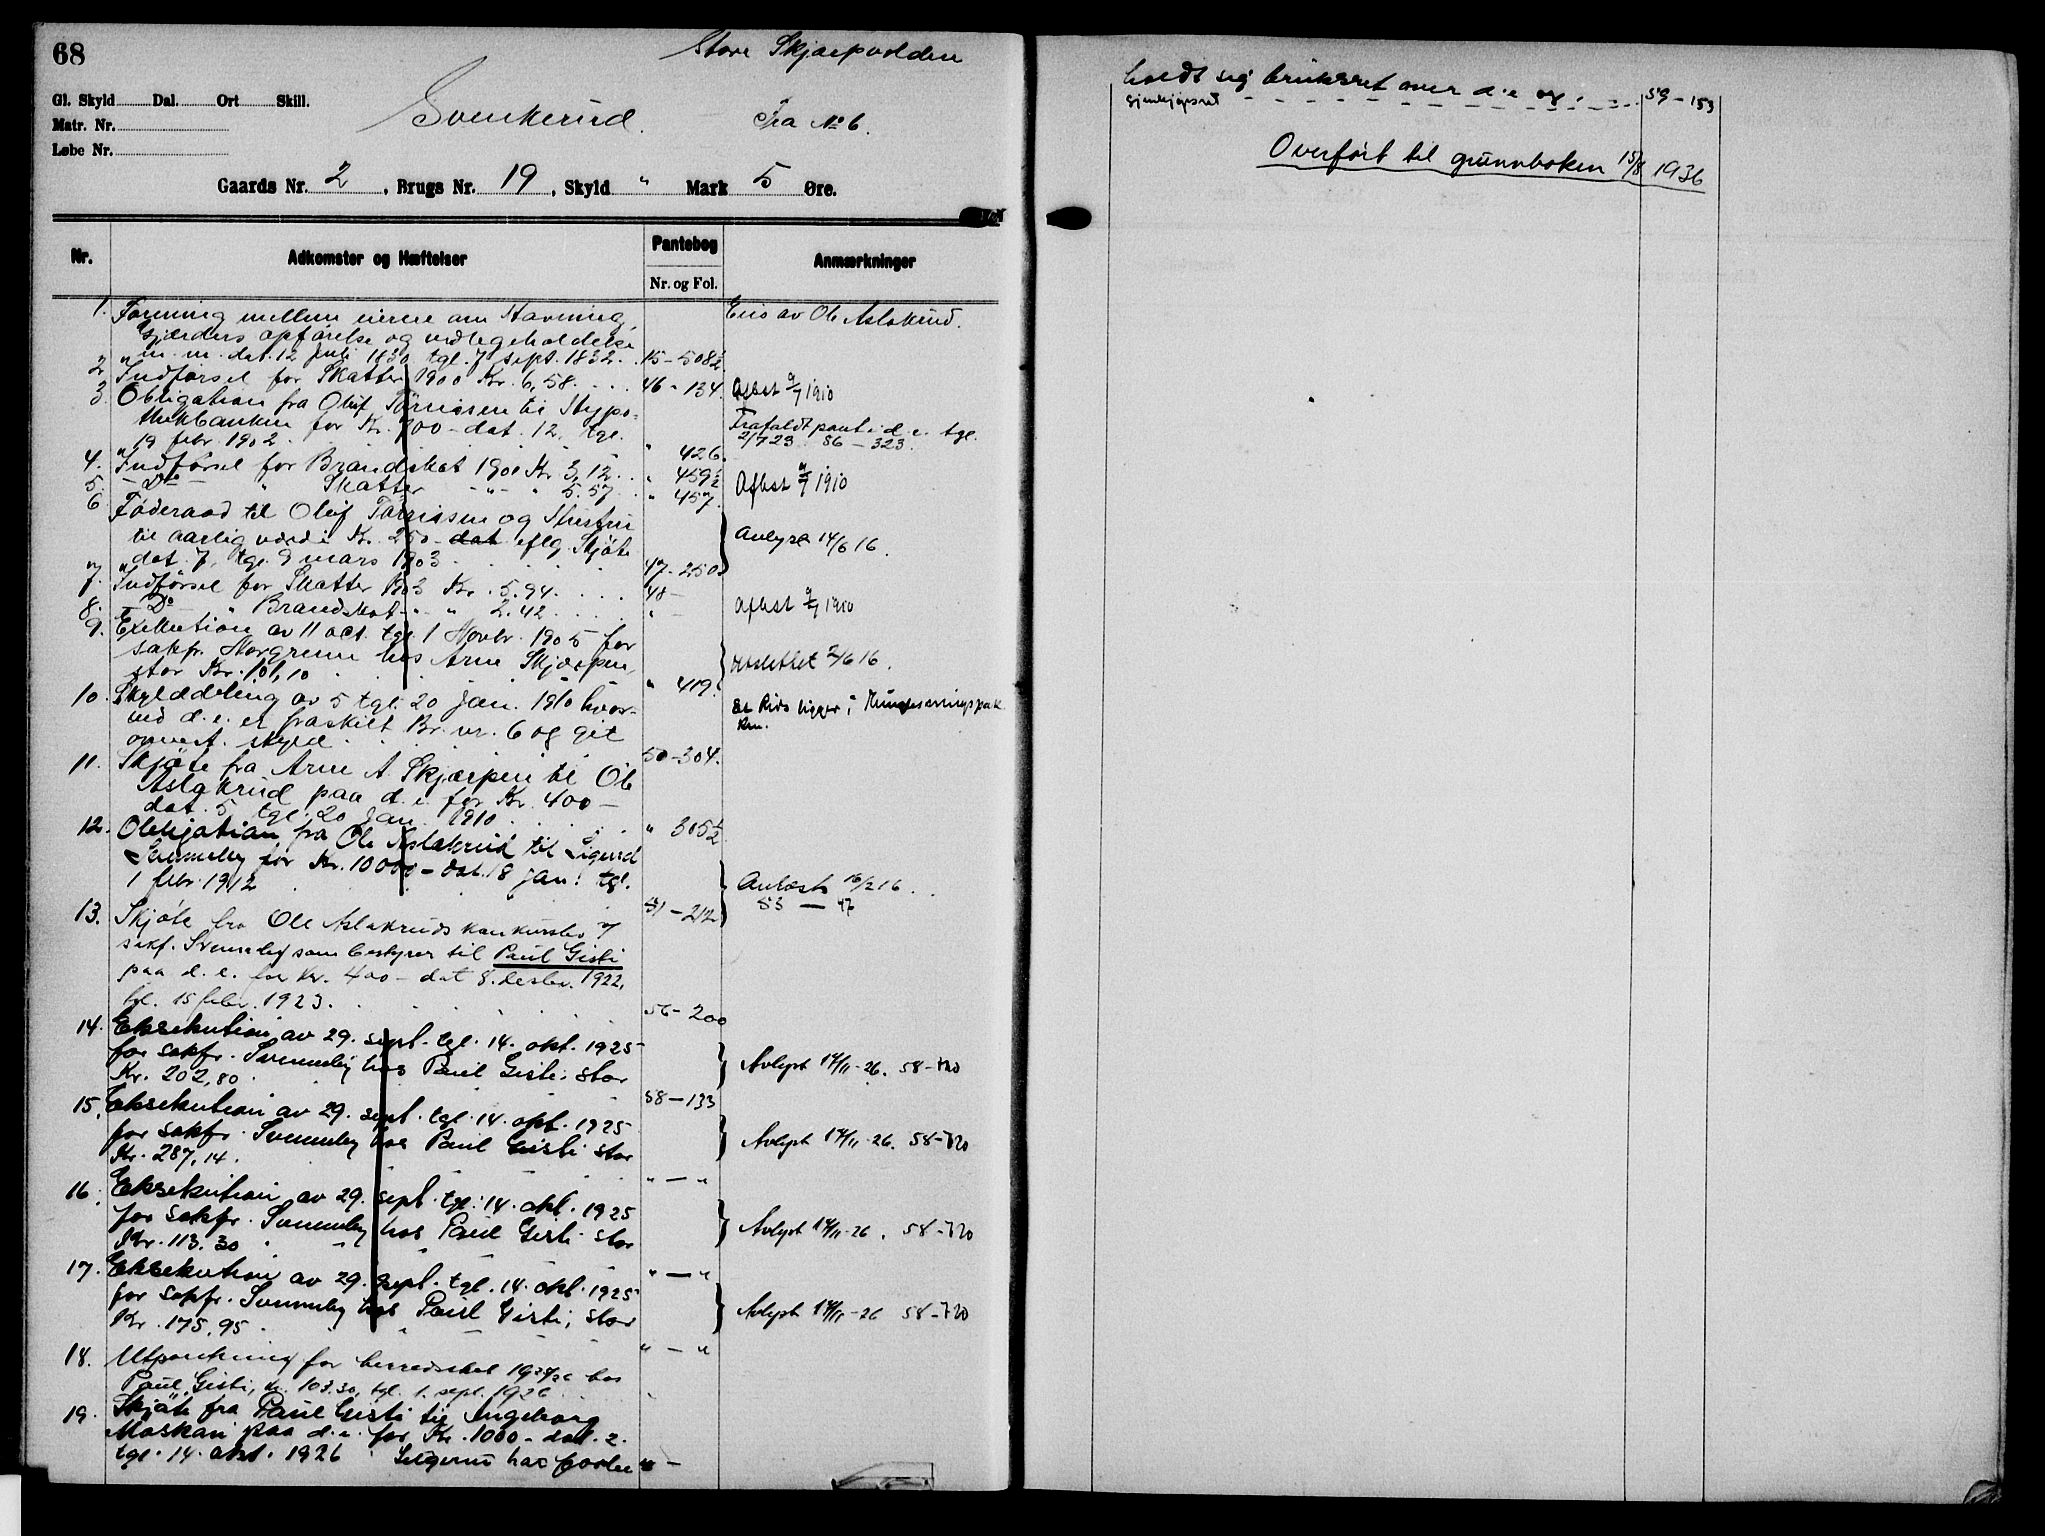 68
Store Skjærpvolden
Gl. Skyld Dal. Ort Skill.
Svenkerud. Fra No 6.
Matr. Nr.
Løbe Nr.
Gaards Nr. 2, Brugs Nr. 19, Skyld " Mark 5 Øre.
Nr. Adkomster og Hæftelser Pantebog Anmærkninger
Nr. og Fol.
1. Forening mellem eierne om Havning, Eies av Ole Aslakrud.
Gjærders opførelse og vedlegeholdelse
m. m. dat. 12 Juli 1830 tgl. 7 sept. 1832. 15-508½
2. Indførsel for Skatter 1900 Kr. 6,58. 46-134. Aflæst 9/7 1910
3. Obligation fra Oluf Tørrissen til Hypo-
thekbanken for Kr. 700- dat. 12, tgl. Frafaldt pant i d. e. tgl.
19 febr. 1902. " 426. 2/7 23. 56-323.
4. Indførsel for Brandskat 1901 Kr 3,12. " 459½
5. - Do - " Skatter - " - " 5.57. " 457. Aflæst 9/7 1910
6 Føderaad til Oluf Tørrissen og Hustru
til aarlig værdi Kr. 250- dat eflg. Skjøte Avlyst 14/6 16.
dat. 7, tgl. 9 mars 1903 47-250
7. Indførsel for Skatter 1903 Kr. 5.94. 48-
8. - Do - " Brandskat - " - " 2.42. " - Aflæst 9/7 1910
9. Exekution av 11 oct. tgl. 1 Novbr. 1905 for
sakfr. Horgrenn hos Arne Skjærpen, utslettet 2/6 16.
stor Kr. 101,10 " 419.
10. Skylddeling av 5 tgl. 20 jan. 1910 hvor-
ved d. e. er fraskilt Br. nr. 6 og git
ovenst. skyld. 50-304.
11. Skjøte fra Arne A. Skjærpen til Ole
Aslakrud paa d. e. for Kr. 400-
dat. 5 tgl. 20 jan. 1910 " 305½
12. Obligation fra Ole Aslakrud til Sigurd
Svenneby for Kr. 10000- dat. 18 jan. tgl.
1 febr. 1912 51-212 Avlæst 16/2 16.
53 - 47
13. Skjøte fra Ole Aslakruds konkursbo v/
sakf. Svenneby som bestyrer til Paul Gisti
paa d. e. for Kr. 400- dat 8. desbr. 1922,
tgl. 15 febr. 1923. 56-200
14. Eksekution av 29. sept. tgl. 14. okt. 1925
for sakfr. Svenneby hos Paul Gisti, stor Avlyst 14/11-26. 58-720
Kr. 202,80. 58-133
15. Eksekution av 29. sept. tgl. 14. okt. 1925
for sakfr. Svenneby hos Paul Gisti stor Avlyst 14/11-26. 58-720
Kr. 287,14. " - "
16. Eksekution av 29. sept. tgl. 14. okt. 1925
for sakfr. Svenneby hos Paul Gisti stor Avlyst 14/11-26. 58-720
Kr. 113.30 " - "
17. Eksekution av 29. sept. tgl. 14. okt. 1925
for sakfr. Svenneby hos Paul Gisti, stor Avlyst 14/11-26 58-720
Kr. 175,95 " - "
18. Utpantning for herredsskat 1925/26 hos
Paul Gisti, kr. 103.30, tgl. 1. sept. 1926
19. Skjøte fra Paul Gisti til Ingeborg
Moskau paa d. e. for Kr. 1000- dat. 2.
tgl. 14. okt. 1926 Selgeren har forbe " -
holdt sig bruksret over d. e. og 59-153
gjenkjøpsret
Overført til grunnboken 15/8 1936